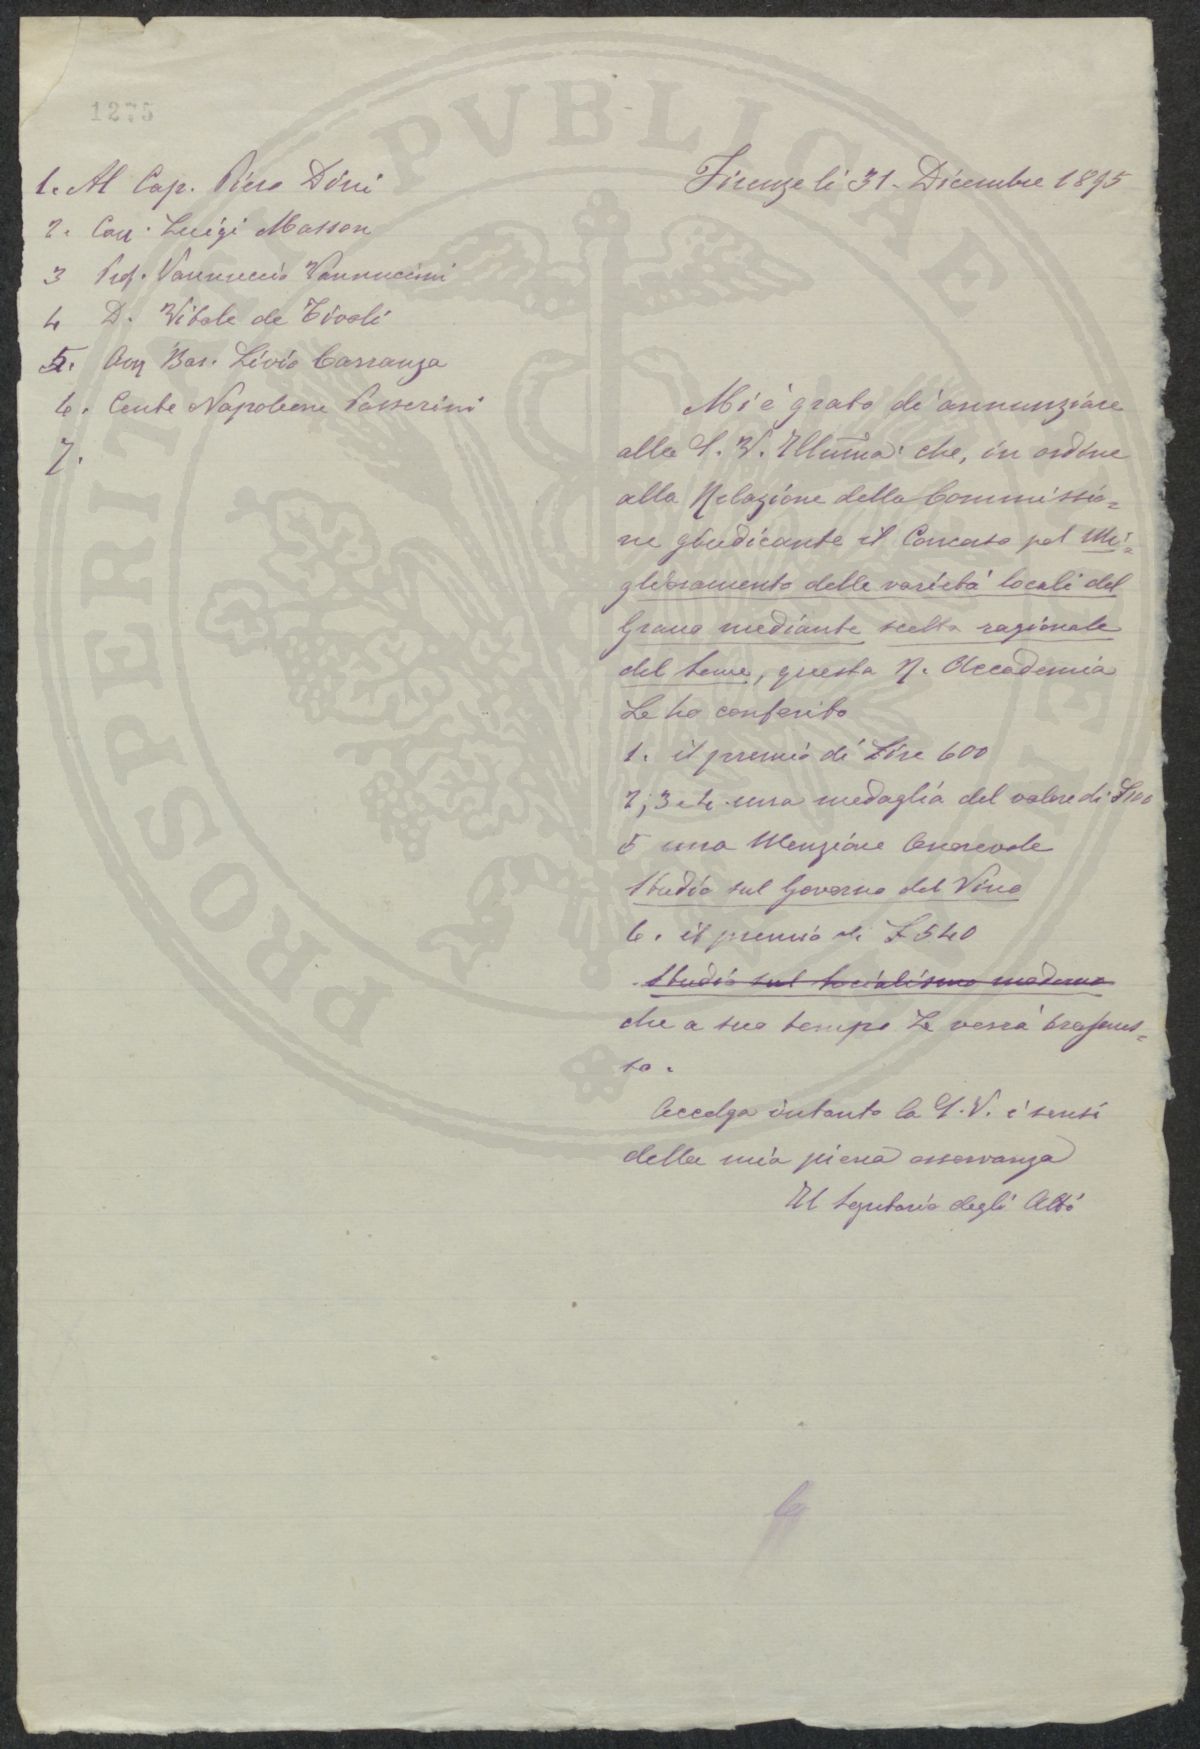 1275
1. Al Cap. Piero Dini
2. Cav. Luigi Masson
3 Prof. Vannuccio Vannuccini
4 D. Vitale de Tivoli
5. Avv Bar. Livio Carranza
6. Conte Napoleone Passerini
7.
Firenze li 31. Dicembre 1895
Mi è grato di annunziare
alla S. V. Illuma: che, in ordine
alla Relazione della Commissio=
ne giudicante il Concorso pel Mi=
glioramento delle varietà locali del
Grano mediante scelta razionale
del seme, questa R. Accademia
Le ha conferito
1. il premio di Lire 600
2, 3 e 4. una medaglia del valore di £100
5 una Menzione Onorevole
Studio sul Governo del Vino
6. il premio di £ 540
Studio sul Socialismo moderno
che a suo tempo Le verrà trasmes=
so.
Accolga intanto la S. V. i sensi
della mia piena osservanza
Il Segretario degli Atti
PROSPERITATI PVBLICAE